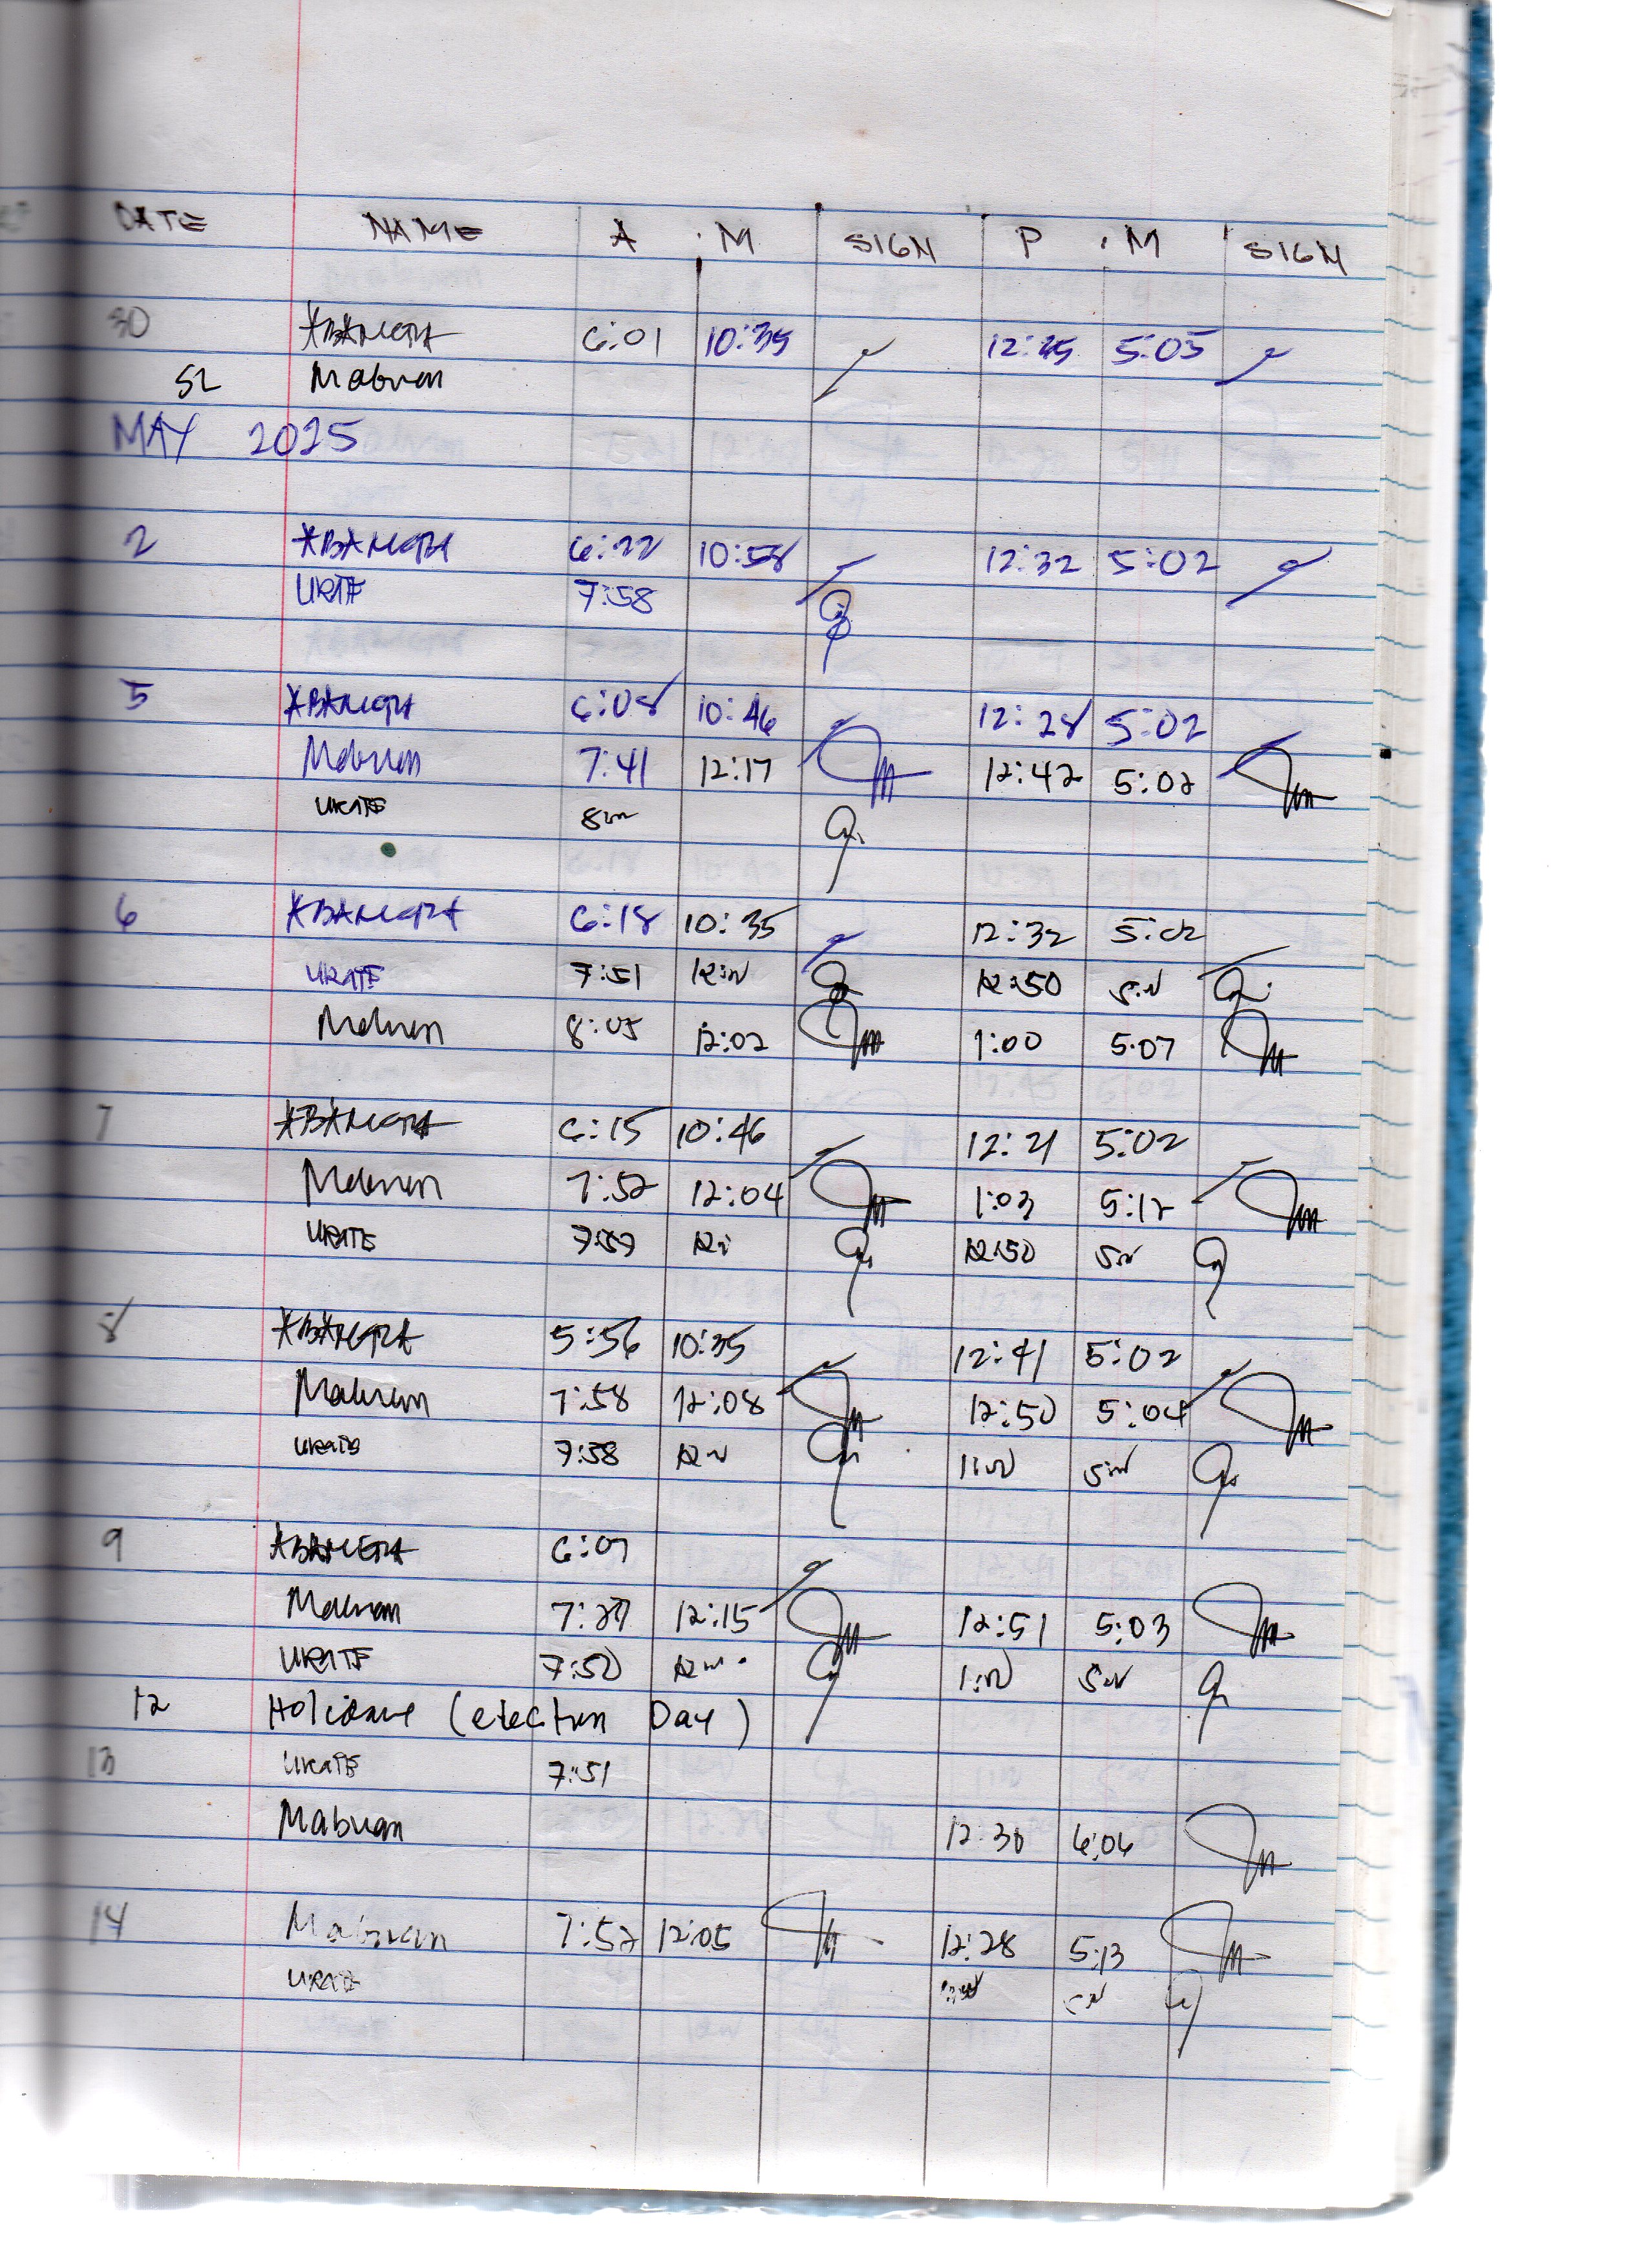 DATE NAME A . M SIGN P . M SIGN
30 ABANERA 6:01 10:35 12:45 5:05
SL Mabuan
MAY 2025
2 ABANERA 6:22 10:58 12:32 5:02
URATE 7:58
5 ABANERA 6:08 10:46 12:28 5:02
Mabuan 7:41 12:17 12:42 5:02
URATE
6 ABANERA 6:18 10:35 12:32 5:02
URATE 7:51 12:50
Mabuan 8:05 12:02 1:00 5:07
7 ABANERA 6:15 10:46 12:21 5:02
Mabuan 7:52 12:04 1:03 5:12
URATE 12:50
8 ABANERA 5:56 10:35 12:41 5:02
Mabuan 7:58 12:08 12:50 5:04
URATE 7:58
9 ABANERA 6:07
Mabuan 12:15 12:51 5:03
URATE 7:50
12 Holiday (election Day)
13 URATE 7:51
Mabuan 12:30 6:06
14 Mabuan 7:52 12:05 12:28 5:13
URATE